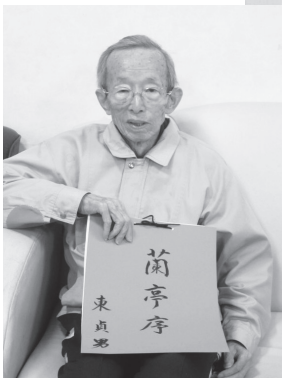 蘭亭序
東貞男